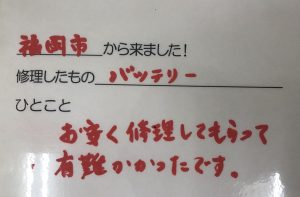 福岡市から来ました!
修理したもの バッテリー
ひとこと
お安く修理してもらって
有難かかったです。